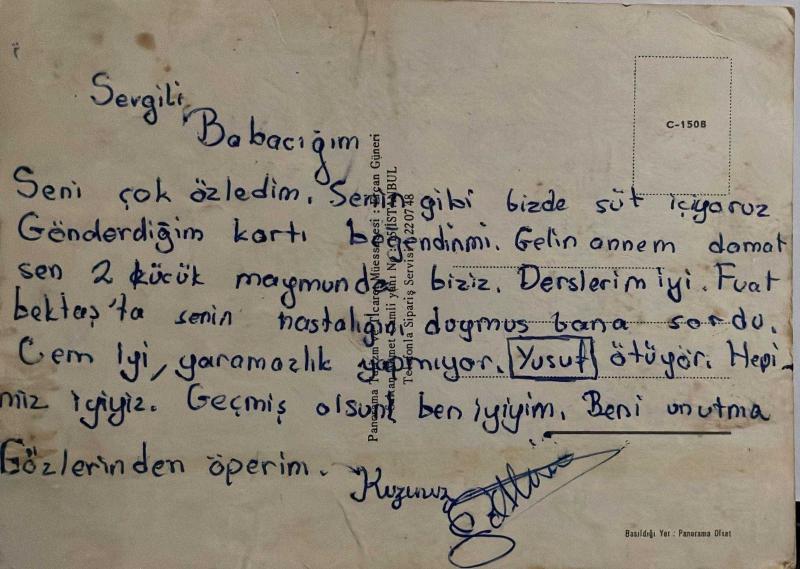 Sergili
Babacığım
Seni çok özledim. Senin gibi bizde süt içiyoruz
Gönderdiğim kartı beğendinmi. Gelin annem damat
sen 2 küçük maymunda biziz. Derslerim iyi. Fuat
bektaş'ta senin hastalığını duymuş bana sordu.
Cem iyi, yaramazlık yapmıyor. Yusuf ötüyor. Hepi-
miz iyiyiz. Geçmiş olsun, ben iyiyim. Beni unutma
Gözlerinden öperim.
Kuzunuz
C-150B
Panorama Turizm Ticaret Müessesesi : Ercan Güneri
İSTANBUL
Telefonla Sipariş Servisi : 220748
Basıldığı Yer : Panorama Ofset